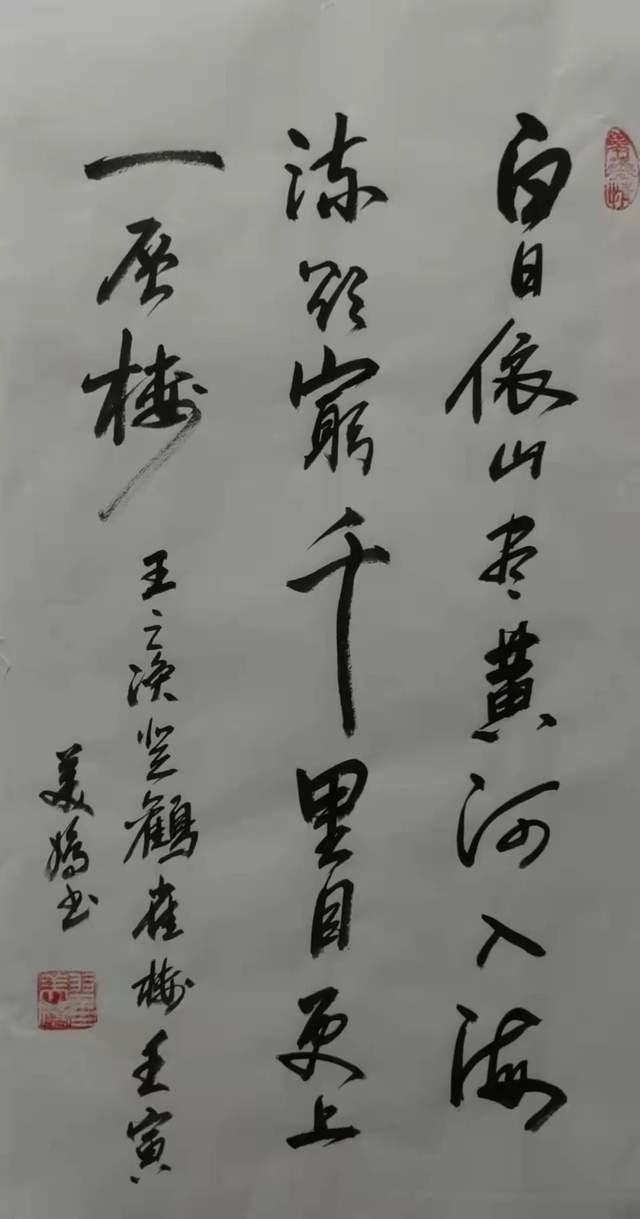 白日依山尽黄河入海
流欲窮千里目更上
一层楼
王之涣登鸛雀楼壬寅
美书